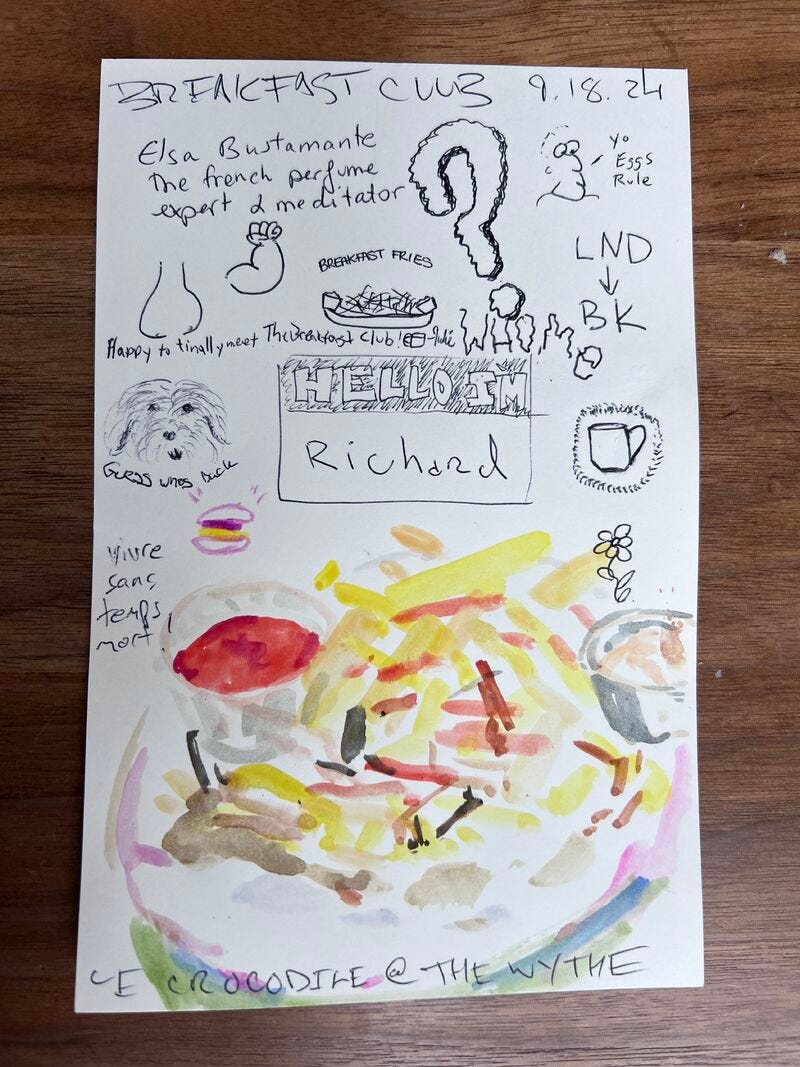 BREAKFAST CLUB 9.18.24
Elsa Bustamante
The french perfume
expert & meditator
Yo
Eggs
Rule
LND
BK
BREAKFAST FRIES
Happy to finally meet The Breakfast Club!
WHOM
HELLO I'M
Richard
Guess whos back
Vivre
sans
temps
mort!
LE CROCODILE @ THE WYTHE